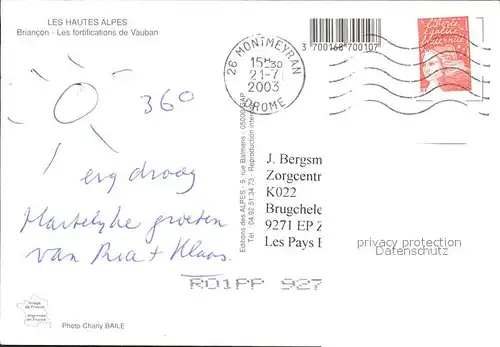 LES HAUTES ALPES
Briançon - Les fortifications de Vauban
3 700168 700107
26 MONTMEYRAN
15H30
21-7
2003
DROME
liberté
égalité
fraternité
36°
erg droog
Hartelijke groeten
van Ria + Klaas.
Editions des ALPES - 5, rue Balmens - 05000 GAP
Tél : 04.92.51.34.73 - Reproduction inter
J. Bergsm
Zorgcentr
K022
Brugchele
9271 EP Z
Les Pays B
privacy protection
©delcampe.net
RD1PP 927
Image
de France
imprimée
en France
Photo Charly BAILE